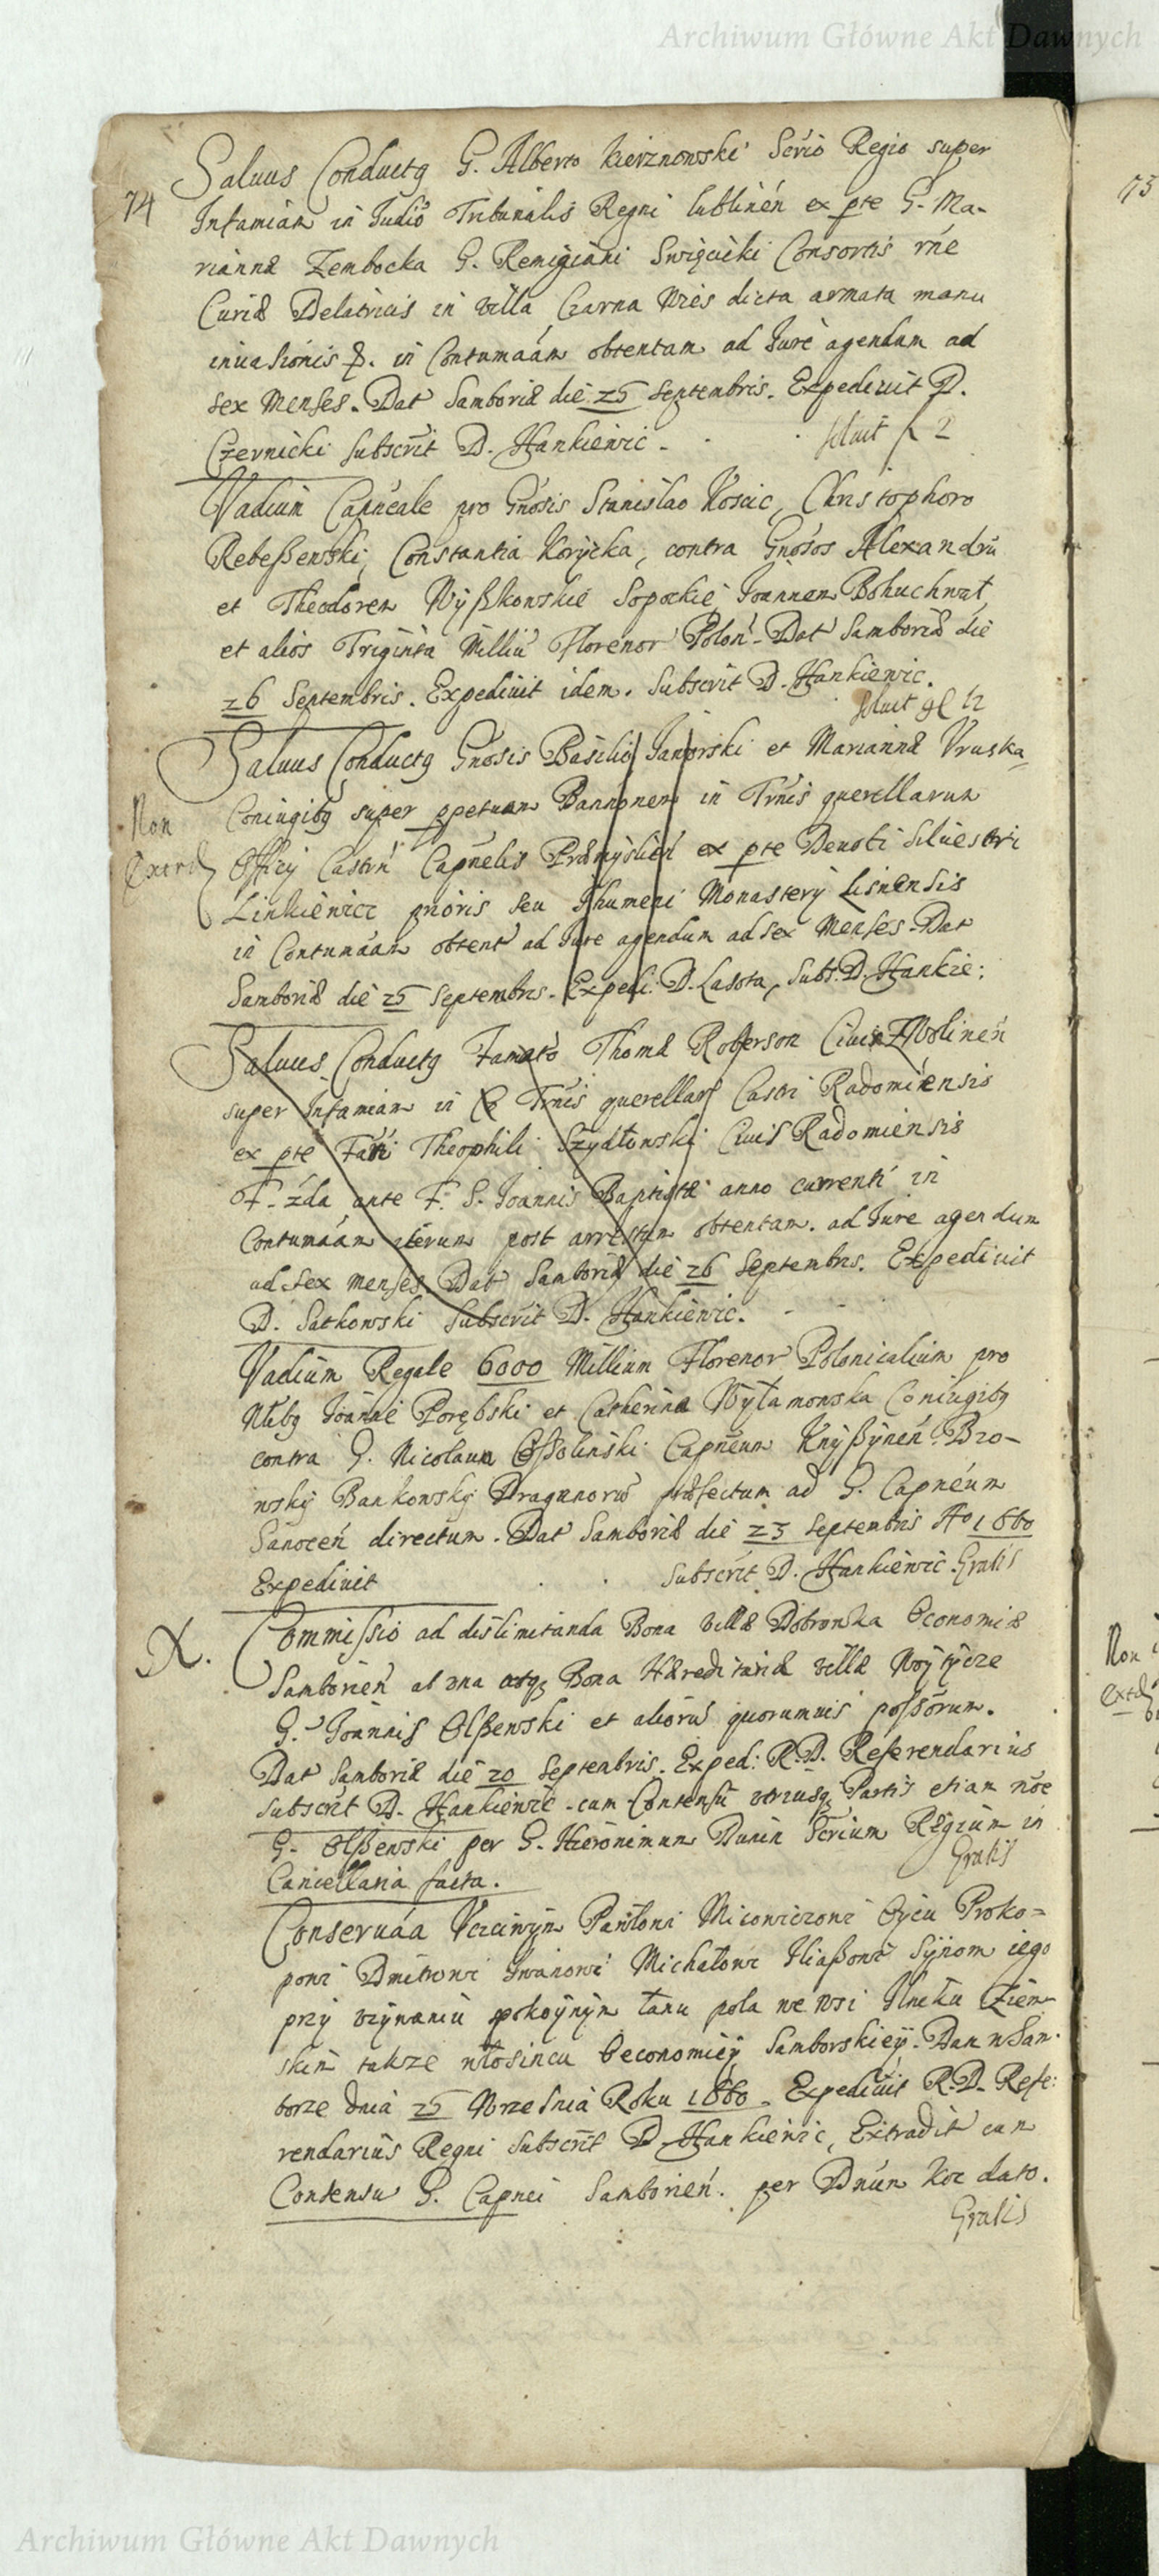 Archiwum Główne Akt Dawnych
74
Saluus Conductq G. Alberto Kierznowski Scrio Regio super
Infamiam in Judiō Tribunalis Regni lublinēn ex pte G. Ma-
riannæ Zembocka G. Remigiani Swięcicki Consortis rñe
Curiæ Delatricis in villa Czarna Wies dicta armata manu
inuasionis in Contumaām obtentam ad Jure agendum ad
sex Menses. Dat Samboriæ die 25 Septembris. Expediuit D.
Czernicki Subscrit D. Hankiewic - soluit f 2
Vadium Capnēale pro Gnosis Stanislao Koscic, Christophoro
Rebeßewski, Constantia Korycka, contra Gnosos Alexandrū
et Theodorem Wyßkowskie Sopockie Joannem Bohuchwat
et alios Triginta Milliū Florenor Polon. Dat Samboriæ die
26 Septembris. Expediuit idem. Subscrit D. Hankiewic.
soluit 12
Saluus Conductq Gnosis Basilio Janorski et Mariannæ Vruska
Coniugibq super ppetuam Bannonem in Trnis querellarum
Non
Officij Castrn Capnelis Præmyslien ex pte Deuoti Siluestri
Linkiewicz prioris seu Jhumeni Monastery Lisnensis
in Contumaām obtent ad Jure agendum ad sex Menses. Dat
Samboriæ die 25 Septembris. Expedi: D. Lasota, Subs. D. Hankie:
Saluus Conductq Famato Thomæ Roberson Ciui Zwolinen
super Infamiam in Trnis querellar Castri Radomiensis
ex pte Fati Theophili Szydłowski Ciuis Radomiensis
F. 2da ante F. S. Joannis Baptistæ anno currenti in
Contumaām iterum post arrestum obtentam. ad Jure agendum
ad sex menses. Dat Samboriæ die 26 Septembris. Expediuit
D. Satkowski Subscrit D. Hankiewic.
Vadium Regale 6000 Millium Florenor Polonicalium pro
Nlibq Joanne Porębski et Catherina Wytamonska Coniugibq
contra G. Nicolaum Oßolinski Capneum Knyßynēn. Bro-
wsky Bankowsky Dragunorū præfectum ad G. Capnēum
Sanocēn directum. Dat Samboriæ die 23 Septembris Ao 1660
Expediuit Subscrit D. Hankiewic. Gratis
X. Commissio ad dislimitanda Bona villæ Dobrowka Oconomiæ
Samborien ab vna atq Bona Hæreditariæ villæ Woytycze
G. Joannis Olßewski et aliorū quorumuis possorum.
Dat Samboriæ die 20 Septembris. Exped: R. D. Referendarius
Subscrit D. Hankiewic. cum Consensū vtriusq Partis etiam nōe
G. Olßewski per G. Hieronimum Dunin Scrium Regium in
Cancellaria facta. Gratis
Conseruāa Vcziwym Pawłowi Micowiczowi Oycu Proko=
powi Dmitrowi Jwanowi Michałowi Iliaßowi Synom iego
przy vzywaniu spokoynym łanu pola we wsi Ilniku
także włosincu Oeconomiey Samborskiey. Dan w Sam-
borze dnia 25 Wrzesnia Roku 1660. Expediuit R. D. Refe:
rendarius Regni Subscrit D. Hankiewic, Extradit cum
Consensu G. Capnei Samborien. per Dnūm hoc dato.
Gratis
75
Non
Archiwum Główne Akt Dawnych